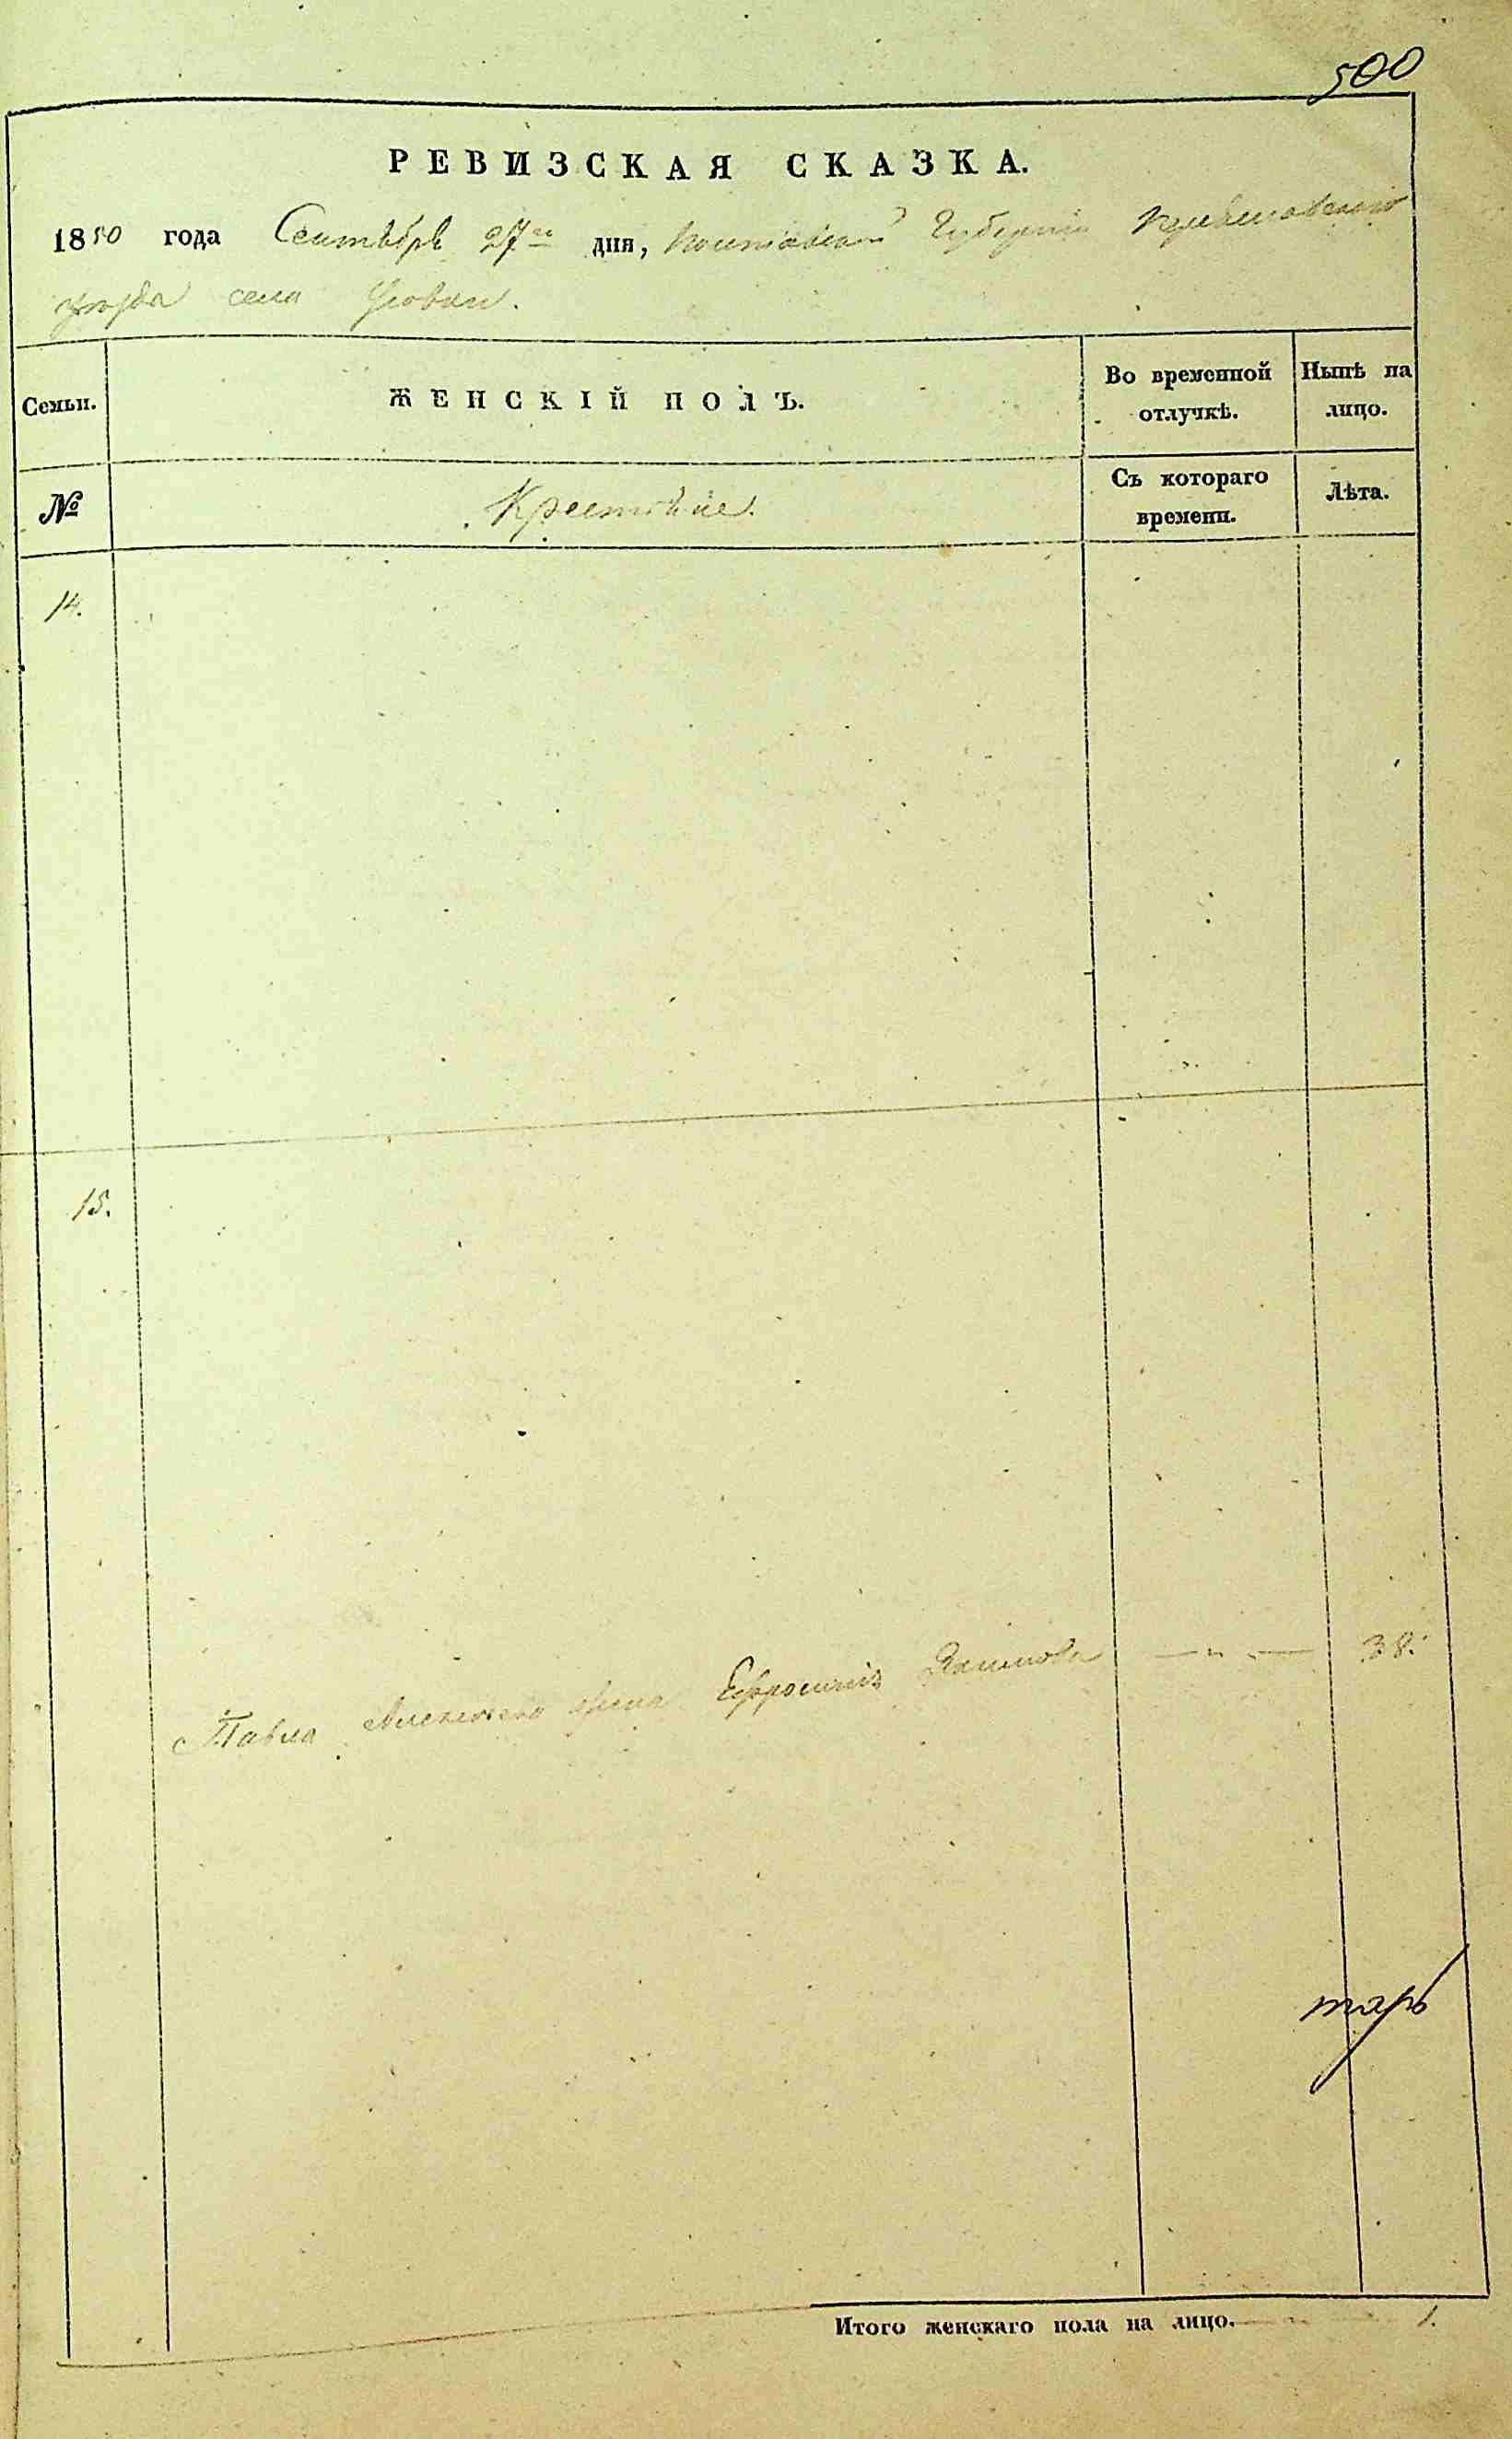 500
РЕВИЗСКАЯ СКАЗКА.
1850 года Сентября 27го дня, Полтавской Губерніи Кременчовскаго
уѣзда села
Семьи.
ЖЕНСКІЙ ПОЛЪ.
Во временной отлучкѣ.
Нынѣ на лицо.
№
Крестьяне.
Съ котораго времени.
Лѣта.
14.
15.
Павла Алексѣева жена Ефросинія 38.
тарь
Итого женскаго пола на лицо. 1.